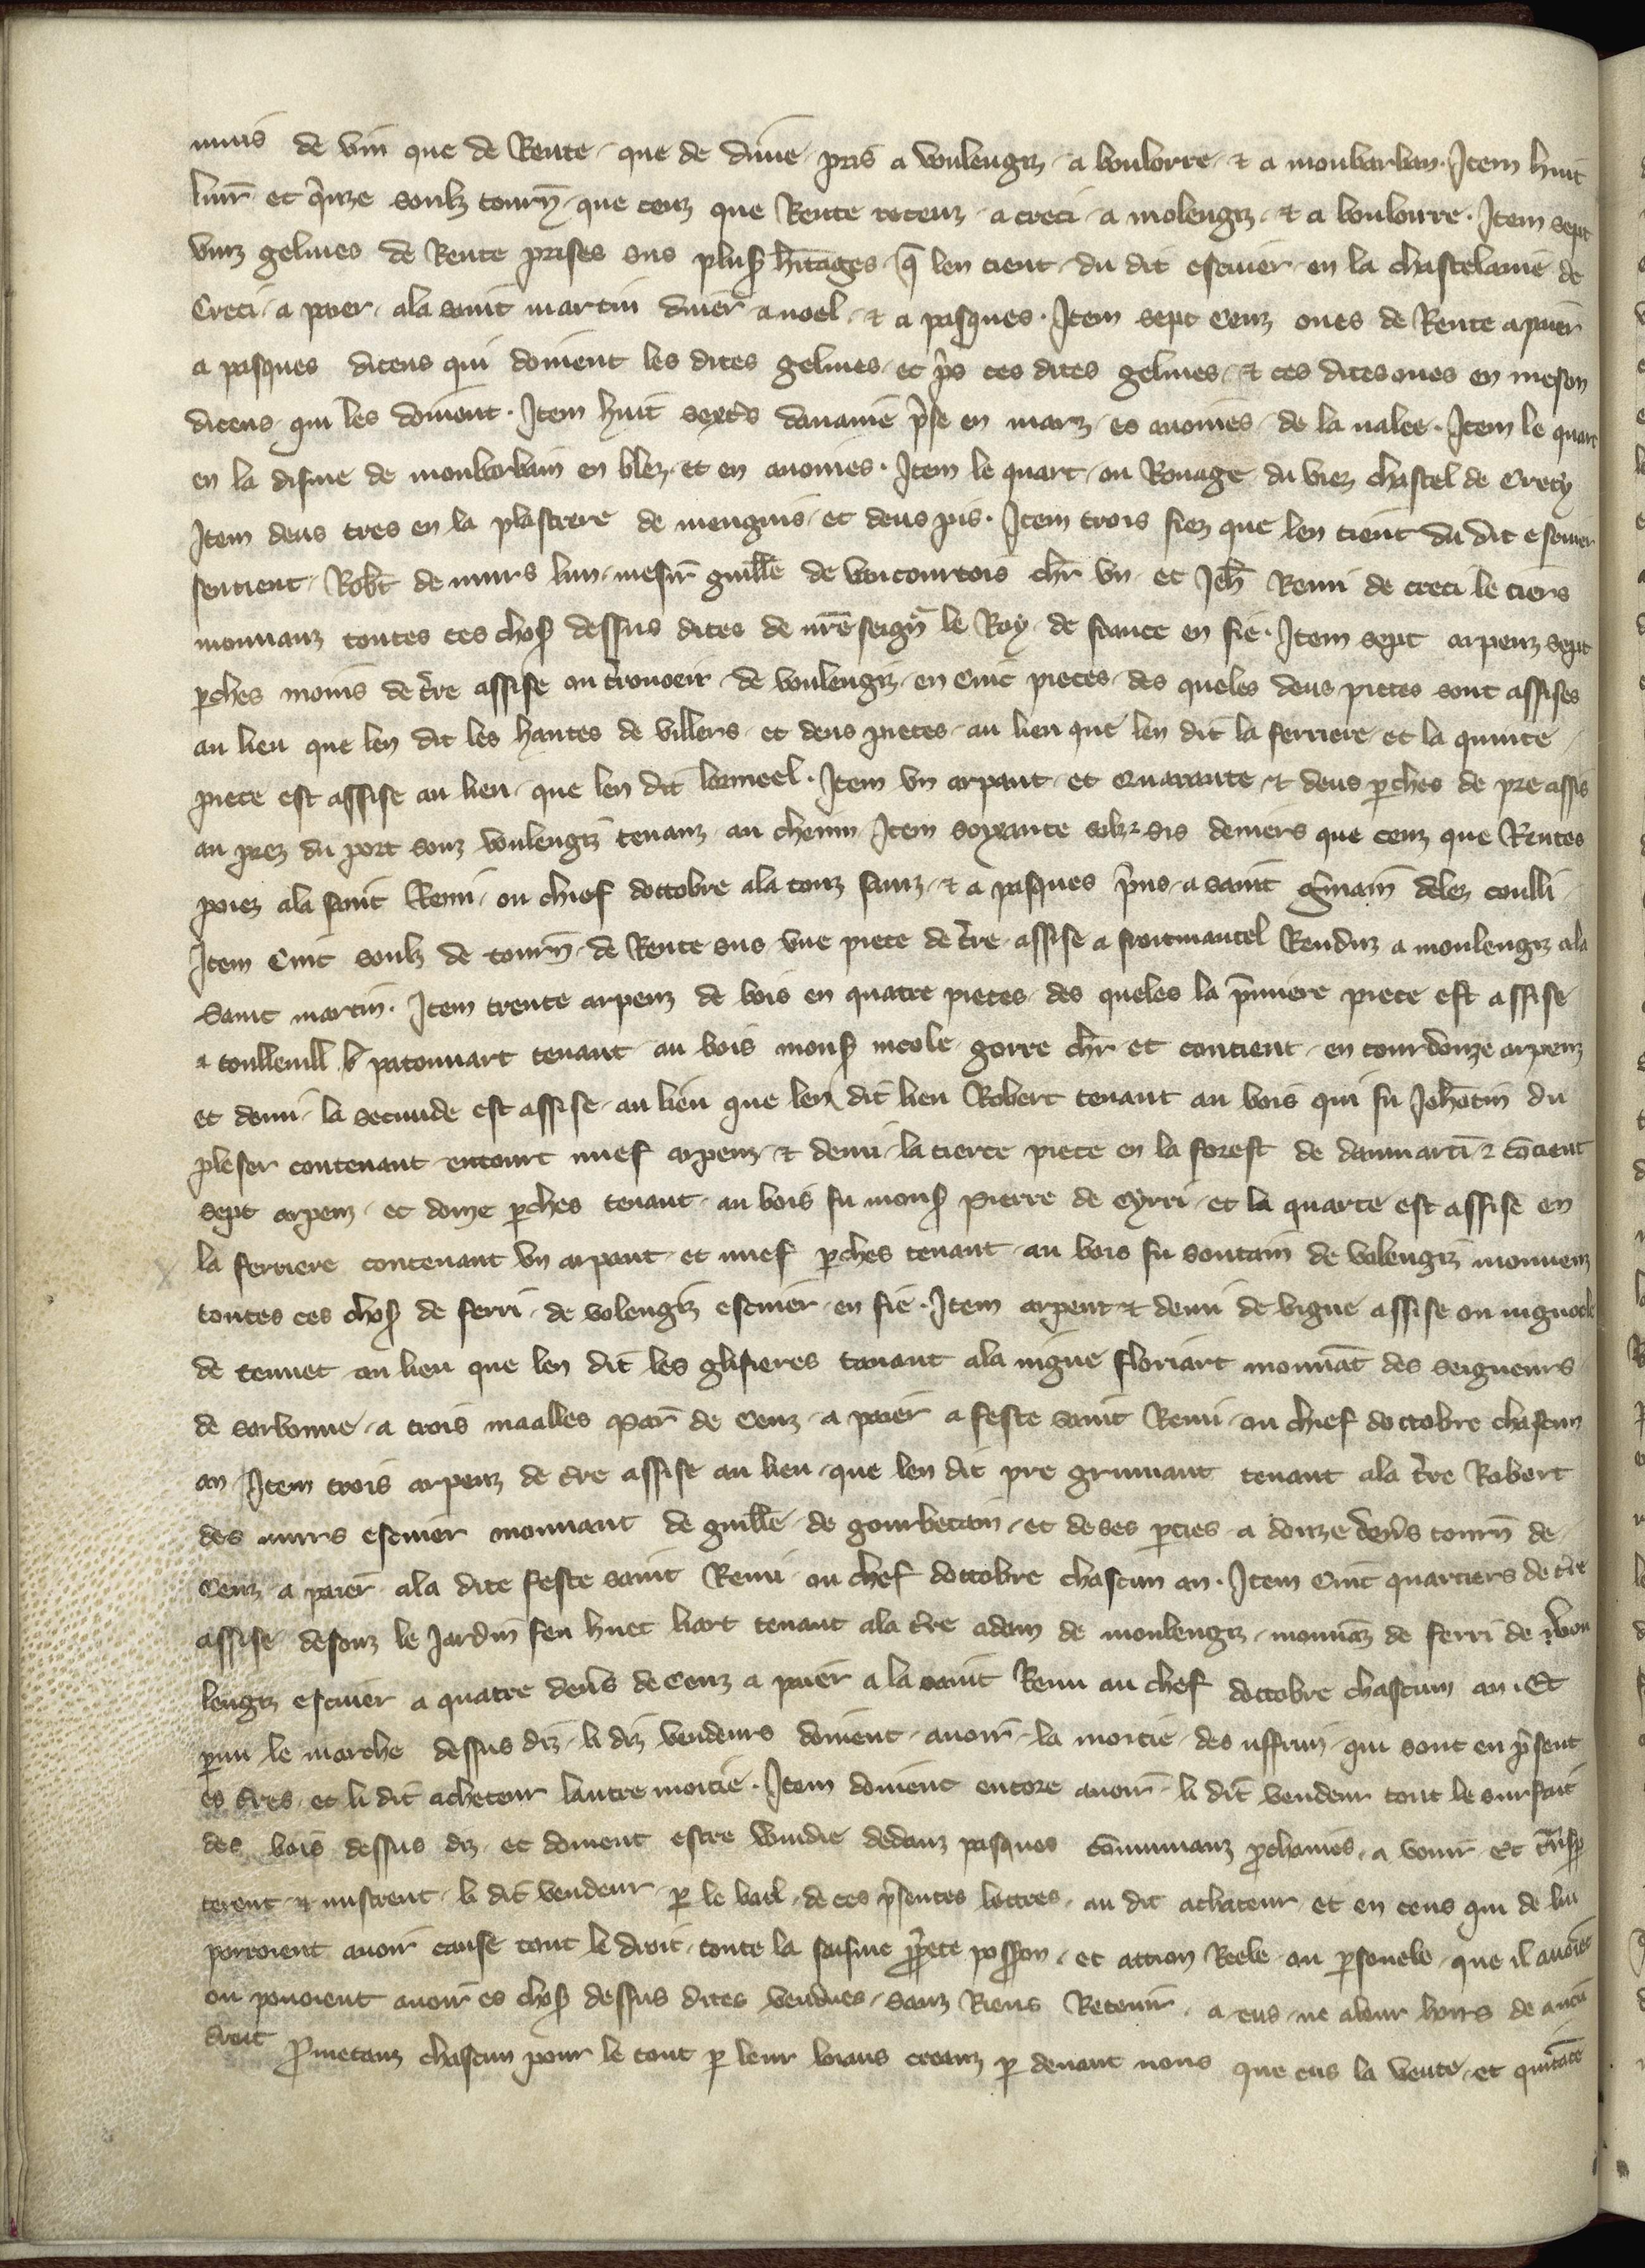 muis de vin que de Rente, que de dime, pris a voulengis, a boulorre, & a monbarban. Item huit
livr̄ et q̄inze soulz tourn̄, que cenz que Rente receuz, a creci, a molengis, & a bouloirre. Item sept
vinz gelines de Rente prises sus plus̄ h̄itages, q̄ len tient, du dit escuier, en la chastelanie de
Creci, a paier, ala saint martin diver̄, a noel, & a pasques. Item sept cenz oues de Rente a paier
a pasques diceus qui doivent les dites gelines, et p̄s ces dites gelines, & ces dites oues en meson
diceus, qui les doivent. Item huit sext̄s davaine p̄se en marz, es avoines, de la valee. Item le quart
en la disme de monbarbain en blez, et en avoines. Item le quart, ou Rouage du viez chastel de Crecy
Item deus tres en la plastrere de mengnis, et deus pis. Item trois fiez que len tient du dit escuier
sen tient, Rob̄t de murs lun, mesir̄ guill̄e de voucourtois ch̄r vn, et Jeh̄ Remi de creci le tiers
mouuanz toutes ces chos̄ dessus dites de nr̄e seign̄r le Roy, de france en fie. Item sept arpenz sept
p̄ches moins de t̄re assise ou t̄rouoeir de voulengis, en cinc pieces, des queles deus pieces sont assises
au lieu que len dit les hantes de villers, et deus pieces, au lieu que len dit la ferriere, et la quinte,
piece est assise au lieu, que len dit lormeel. Item vn arpant, et Quarante, & deus p̄ches de pre assis
au prez du port souz voulengis tenanz, au chemin. Item soixante solz & sis deniers que cenz que Rentes
poiez ala saint Remi, ou chief doctobre ala touz sainz, & a pasques p̄ns, a saint ḡmain delez coulli,
Item Cinc soulz de tourn̄, de Rente sus vne piece de t̄re, assise a froitmantel Renduz a moulengis ala
Saint martin. Item trente arpenz de bois en quatre pieces, des queles la p̄miere piece est assise
a patouuart tenant au bois mons̄ nicole gorre ch̄r et contient, en tour douze arpenz
et demi, la secunde est assise, au lieu que len dit lieu Robert tenant au bois qui fu Jeh̄otin du
pleser contenant entourt nuef arpenz, & demi, la tierce piece en la forest de danmarti & cōtient
sept arpenz, et douze p̄ches tenant, au bois fu mons̄ pierre de cyrri, et la quarte est assise en
la ferriere contenant vn arpant, et nuef p̄ches tenant, au bois fu soutain de volengis mouuenz
toutes ces chos̄ de ferri, de volengis escuier, en fie. Item arpent & demi de vigne assise ou vignoele
de tenuet au lieu que len dit les glisieres tenant ala vigne floriart mouuāt des seigneurs
de sorbonne, a trois maalles par̄ de cenz, a paier a feste saint Remi, ou chief doctobre chascun
an, Item trois arpenz de t̄re assise au lieu, que len dit pre grimant tenant ala t̄re Robert
des murs escuier mouuant de guill̄e de gourbetain, et de ses p̄cies, a douze den̄s tourn̄ de
Cenz a paier ala dite feste saint Remi, ou chef doctobre chascun an. Item Cinc quartiers de t̄re
assise desouz le Jardin feu huet liart tenant ala t̄re adam de moulengis, mouuāz de ferri de vou
lengis escuier a quatre den̄s de cenz a paier a la saint Remi au chef doctobre chascun an. Et
p̄mi le marche dessus diz, li diz vendeurs doivent, auoir, la moitie des uffruis, qui sont en p̄sent
es t̄res, et li dit acheteur lautre moitie. Item doivent encore auoir, li dit vendeur tout le surfait
des bois dessus diz, et doivent estre vuidie dedanz pasques cōmunianz p̄chaines, a venir. Et t̄ns̄p
terent & mistrent, li dit vendeur, p̄ le bail de ces p̄sentes lettres, au dit achateur, et en ceus qui de lui
porroient auoir cause tout le droit, toute la saisine p̄p̄ete poss̄on, et action Reele ou p̄sonele, que il auoiēt
ou pouoient auoir es chos̄ dessus dites vendues, sanz Riens Retenir, a eus, ne aleur hoirs de aucū
droit p̄metanz chascun pour le tout p̄ leur loiaus creanz p̄ deuant nous que eus la vente, et quitāce